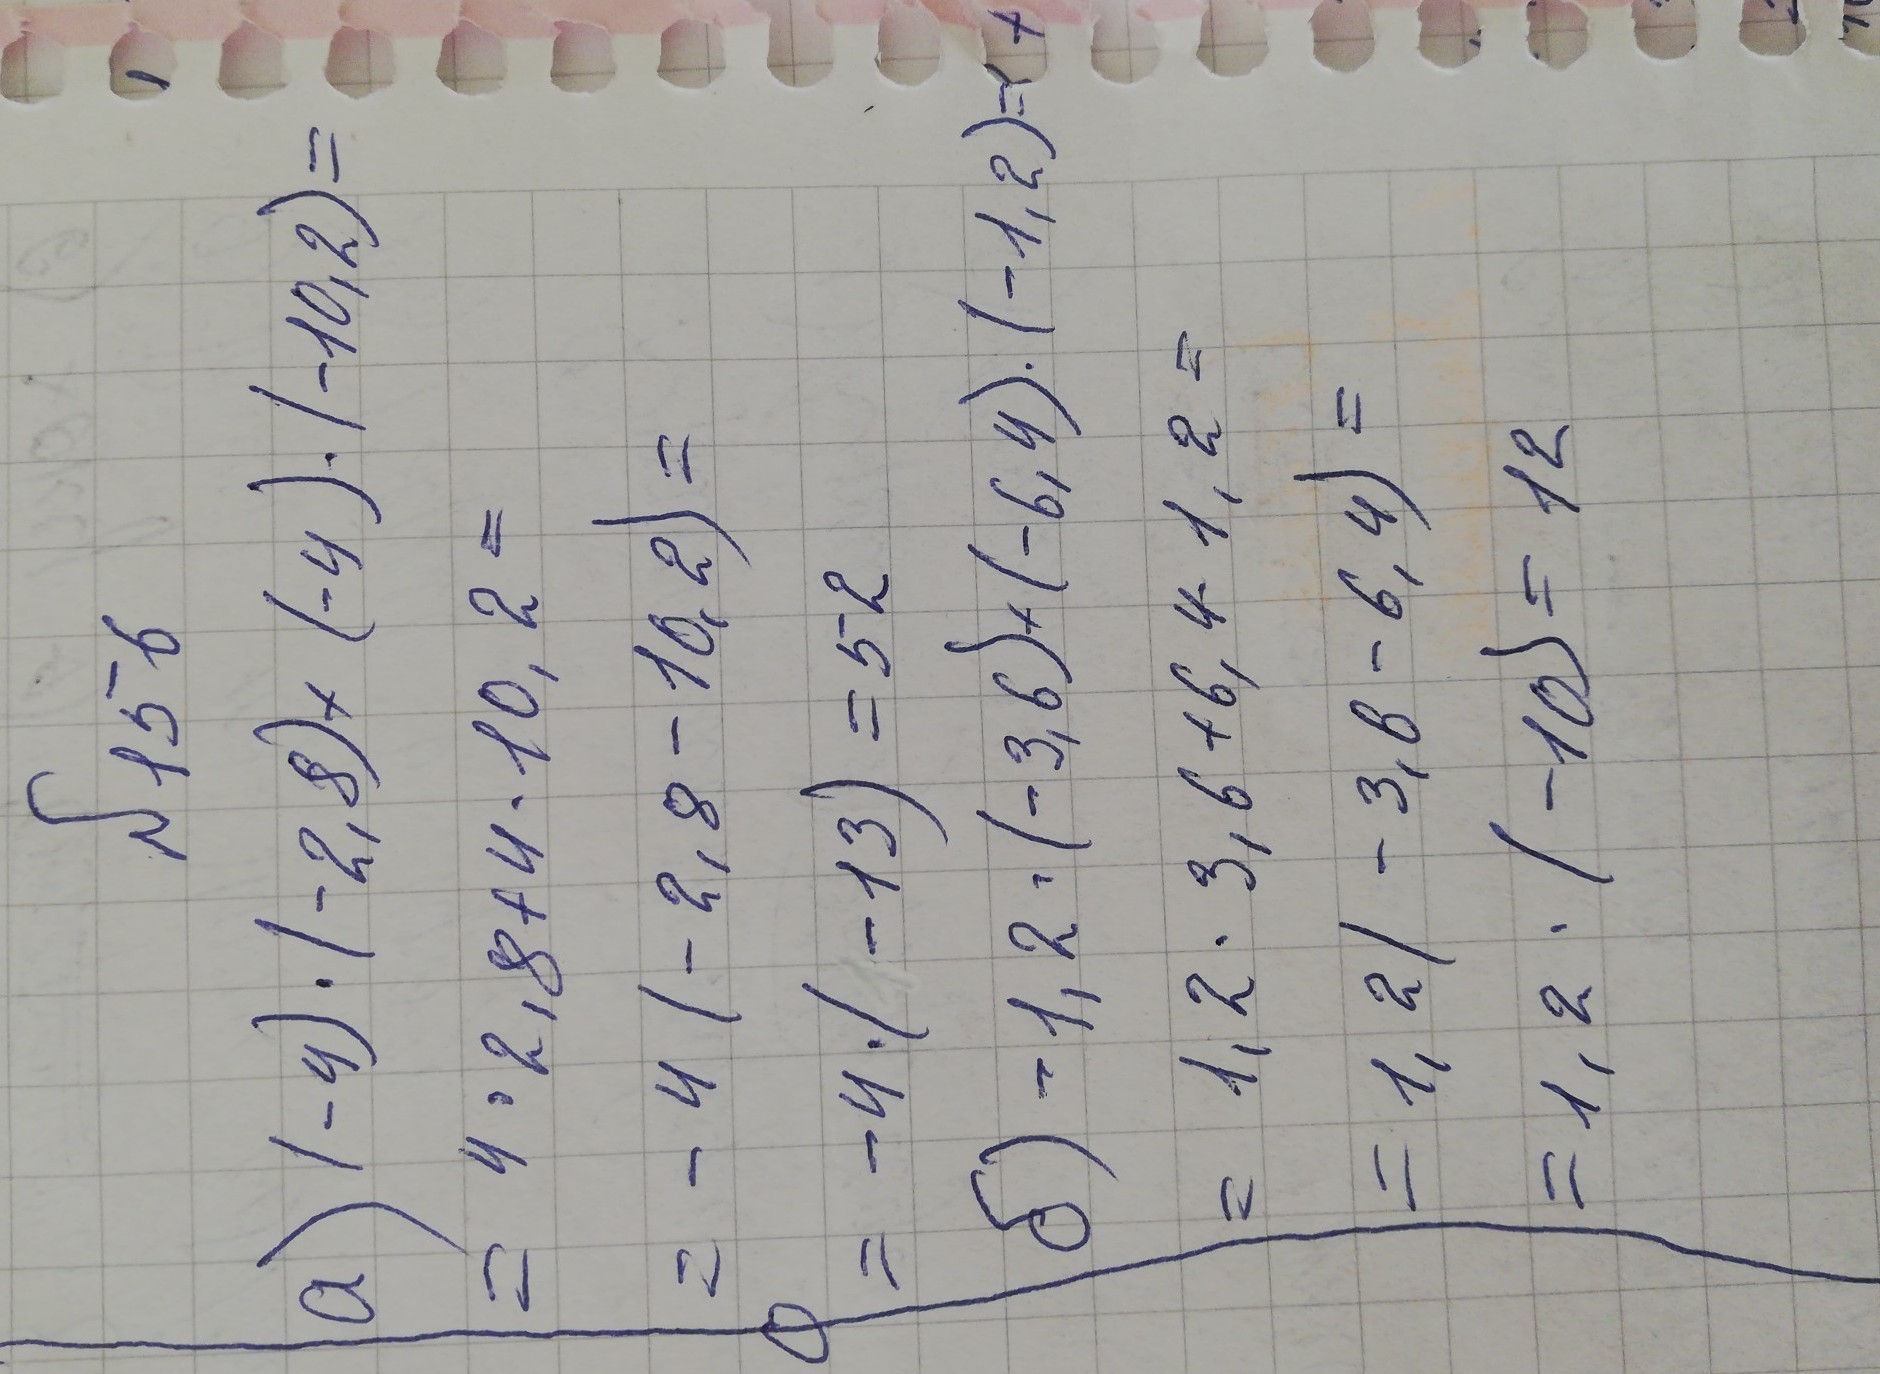 №156
а) (-4)·(-2,8)+(-4)·(-10,2)=
= 4·2,8+4·10,2=
= -4(-2,8-10,2)=
= -4·(-13)=52
б) -1,2·(-3,6)+(-6,4)·(-1,2)=
= 1,2·3,6+6,4·1,2=
= 1,2(-3,6-6,4)=
= 1,2·(-10)=12